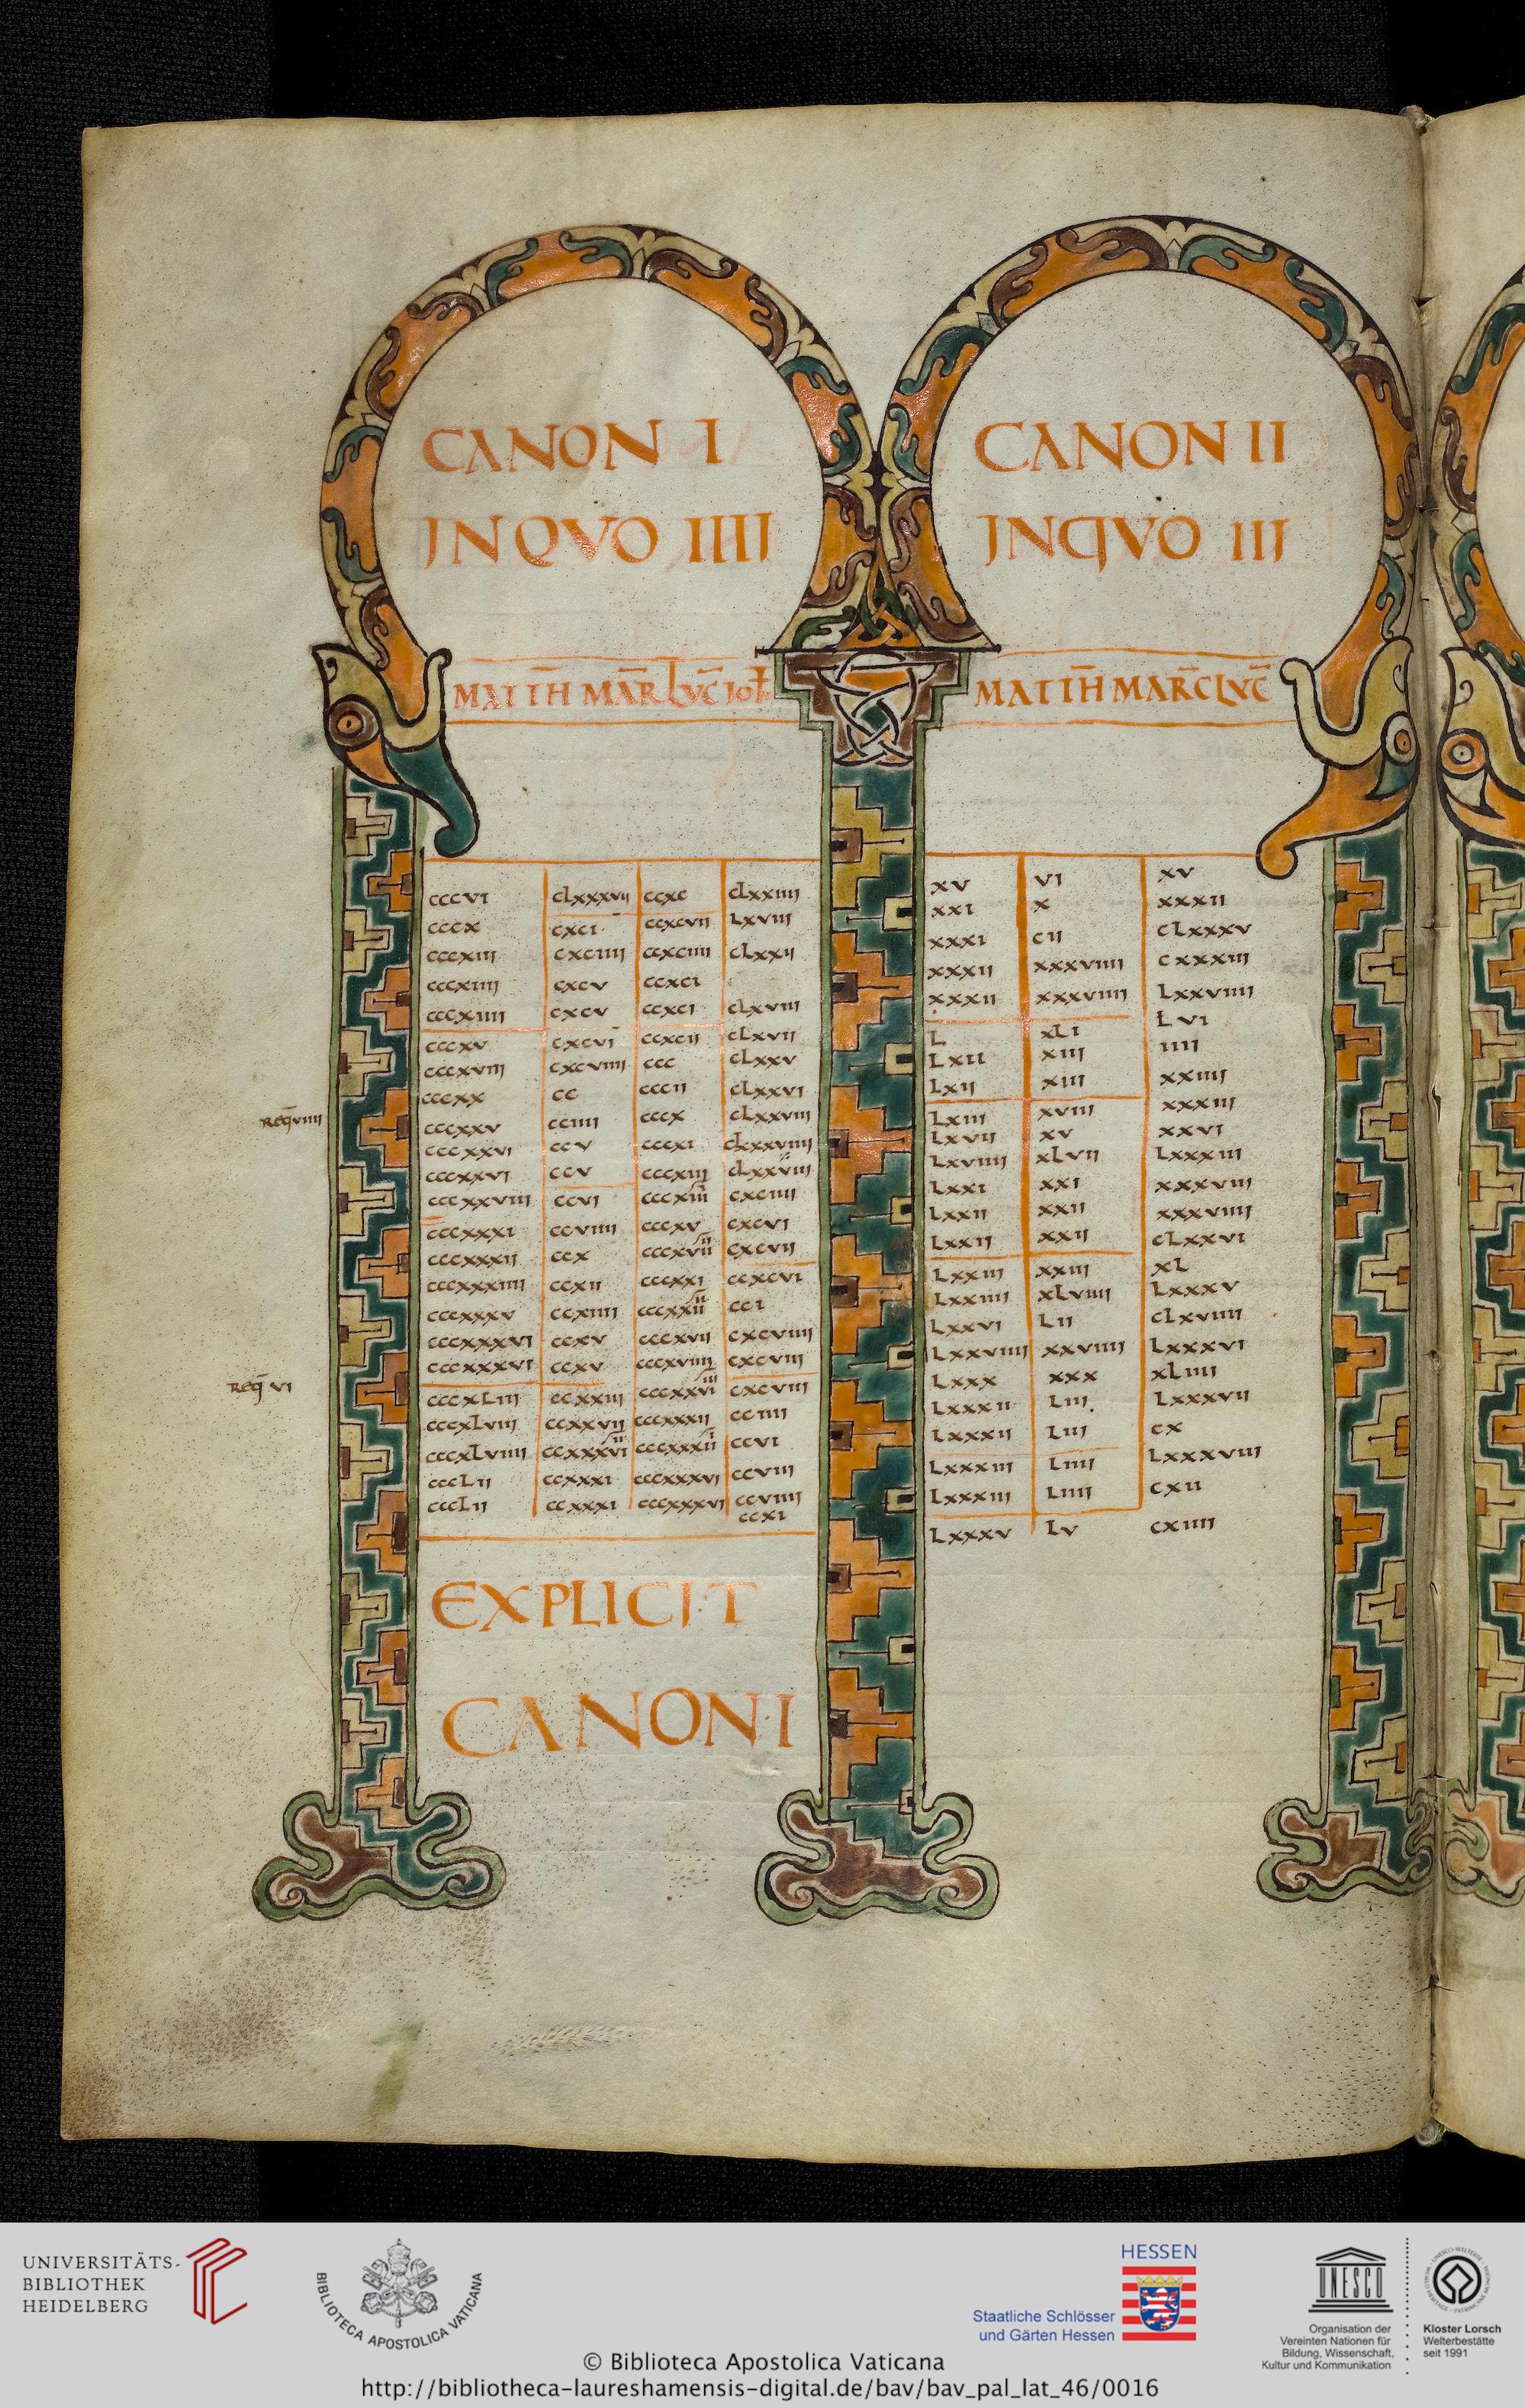 CANON I
IN QVO IIII
MATTH MAR LVC IOH
cccvi clxxxvii ccxc clxxiiii
cccx cxci ccxcvii lxviiii
cccxiii cxciiii ccxciiii clxxii
cccxiiii cxcv ccxci
cccxiiii cxcv ccxci clxviii
cccxv cxcvi ccxcii clxvii
cccxviii cxcviiii ccc clxxv
cccxx cc cccii clxxvi
cccxxv cciiii cccx clxxviii
cccxxvi ccv cccxi clxxxviiii
cccxxvi ccv cccxiii clxxviii
cccxxviii ccvi cccxiii cxciiii
cccxxxi ccviiii cccxv cxcvi
cccxxxii ccx cccxvii cxcvii
cccxxxiiii ccxii cccxxi ccxcvi
cccxxxv ccxiiii cccxxii cci
cccxxxvi ccxv cccxvii cxcviiii
cccxxxvi ccxv cccxviiii cxcviii
cccxliii ccxxiii cccxxvi cxcviii
cccxlviii ccxxvii cccxxxii cciiii
cccxlviiii ccxxxvi cccxxxii ccvi
ccclii ccxxxi cccxxxvi ccviii
ccclii ccxxxi cccxxxvi ccviiii
ccxi
req viiii
req vi
EXPLICIT
CANON I
CANON II
IN QVO III
MATTH MARC LVC
xv vi xv
xxi x xxxii
xxxi cii clxxxv
xxxii xxxviiii cxxxiii
xxxii xxxviiii lxxviiii
l xli lvi
lxii xiii iiii
lxii xiii xxiiii
lxiii xviii xxxiii
lxvii xv xxvi
lxviiii xlvii lxxxiii
lxxi xxi xxxviii
lxxii xxii xxxviiii
lxxii xxii clxxvi
lxxiii xxiii xl
lxxiiii xlviiii lxxxv
lxxvi lii clxviiii
lxxviiii xxviiii lxxxvi
lxxx xxx xliiii
lxxxii liii lxxxvii
lxxxii liii cx
lxxxiii liiii lxxxviii
lxxxiii liiii cxii
lxxxv lv cxiiii
UNIVERSITÄTS-
BIBLIOTHEK
HEIDELBERG
BIBLIOTECA APOSTOLICA VATICANA
HESSEN
Staatliche Schlösser
und Gärten Hessen
UNESCO
Organisation der
Vereinten Nationen für
Bildung, Wissenschaft,
Kultur und Kommunikation
Kloster Lorsch
Welterbestätte
seit 1991
© Biblioteca Apostolica Vaticana
http://bibliotheca-laureshamensis-digital.de/bav/bav_pal_lat_46/0016